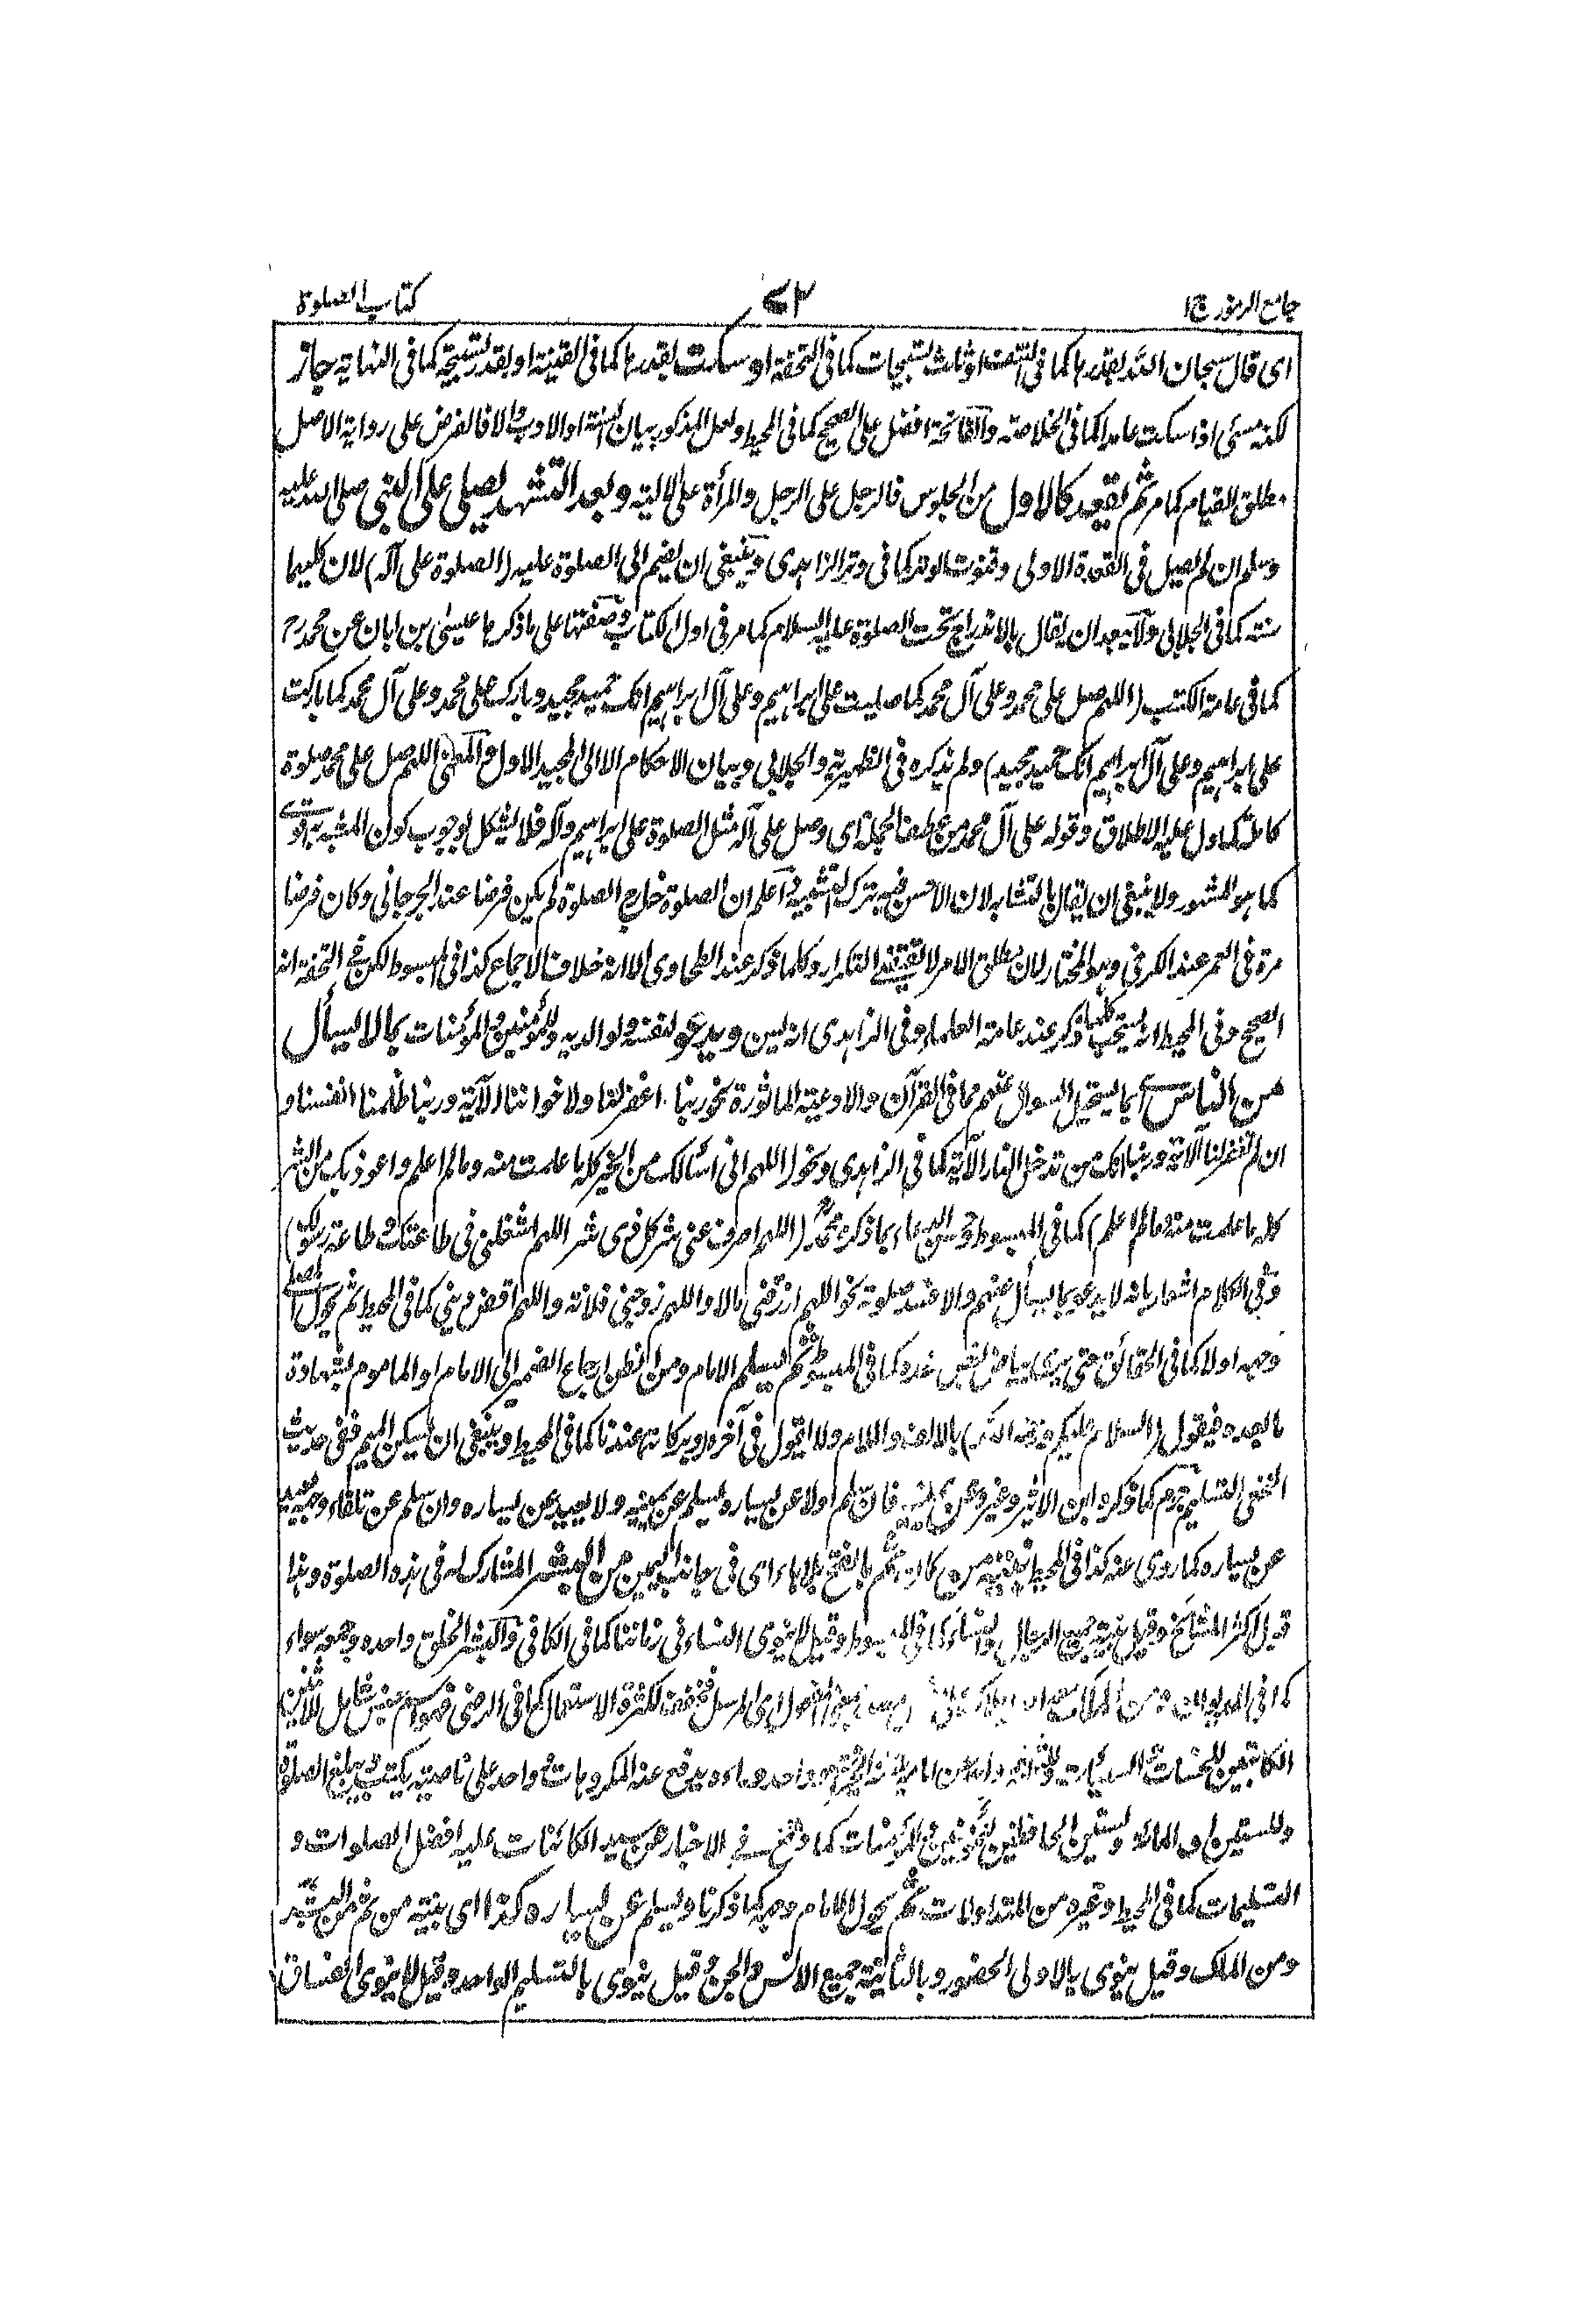 جامع الرموز ج١ ٧٢ كتاب الصلوة
اى قال سبحان الله بقدرها كما فى النتف او ثلث تسبيحات كما فى التحفة او سكت بقدرها كما فى القنية او بقدر تسبيحة كما فى النهاية جاز
لكنه مسئ اذا سكت عامدا كما فى الخلاصة والفاتحة افضل على الصحيح كما فى المحيط ولعل المذكور بيان السنة او الادب والا فالفرض على رواية الاصل
مطلق القيام كما مر ثم يقعد كالاول من الجلوس فالرجل على الرجل والمرأة على الالية وبعد التشهد يصلى على النبى صلى الله عليه
وسلم ان لم يصل فى القعدة الاولى وقنوت الوتر كما فى وتر الزاهدى وينبغى ان يضم الى الصلوة عليه (الصلوة على آله) لان كليهما
سنة كما فى الجلابى ولا يبعد ان يقال بالاندراج تحت الصلوة عليه السلام كما مر فى اول الكتاب وصفتها على ما ذكرها عيسى بن ابان عن محمد رح
كما فى عامة الكتب (اللهم صل على محمد وعلى آل محمد كما صليت على ابراهيم وعلى آل ابراهيم انك حميد مجيد وبارك على محمد وعلى آل محمد كما باركت
على ابراهيم وعلى آل ابراهيم انك حميد مجيد) ولم يذكره فى الظهيرية والجلابى وبيان الاحكام الا الى المجيد الاول والمعنى اللهم صل على محمد صلوة
كاملة كما دل عليه الاطلاق وقوله على آل محمد من عطف الجملة اى وصل على آله مثل الصلوة على ابراهيم وآله فلا يشكل لوجوب كون المشبه به اقوى
كما هو المشهور ولا ينبغى ان يقال بالتشابه لان الاحسن فيه ترك التشبيه واعلم ان الصلوة خارج الصلوة لم يكن فرضا عند الجرجانى وكان فرضا
مرة فى العمر عند الكرخى وهو المختار لان مطلق الامر لا يقتضى التكرار وكلما ذكر عند الطحاوى الا انه خلاف الاجماع كذا فى المبسوط لكن فى التحفة انه
الصحيح وفى المحيط انه يستحب كلما ذكر عند عامة العلماء وفى الزاهدى انه يسن ويدعو لنفسه ولوالديه وللمؤمنين والمؤمنات بما لا يسأل
من الناس اى بما يستحيل السوال عنهم مما فى القرآن والادعية الماثورة نحو ربنا اغفر لنا ولاخواننا الآية وربنا ظلمنا انفسنا و
ان لم تغفر لنا الآية وربنا انك من تدخل النار الآية كما فى الزاهدى ونحو (اللهم انى اسألك من الخير كله ما علمت منه وما لم اعلم واعوذ بك من الشر
كله ما علمت منه وما لم اعلم) كما فى المبسوط ومن الدعاء ما ذكره محمد (اللهم اصرف عنى شر كل ذى شر اللهم اشغلنى فى طاعتك وطاعة رسولك)
وفى الكلام اشعار بانه لا يدعو بما يسأل عنهم والا فسد صلوته نحو اللهم ارزقنى مالا واللهم زوجنى فلانة واللهم اقض دينى كما فى المحيط ثم يحول المصلى
وجهه اولا كما فى الحقائق حتى يرى بياض خده كما فى المبسوط ثم يسلم الامام ومن الظن ارجاع الضمير الى الامام او الماموم بشهادة
ما بعده فيقول (السلام عليكم ورحمة الله) بالالف واللام ولا يقول فى آخره وبركاته عندنا كما فى المحيط وينبغى ان يسكن الميم ففى حديث
النخعى التسليم جزم كما ذكره ابن الاثير وغيره عن يمينه فان سلم اولا عن يساره يسلم عن يمينه ولا يعيد عن يساره وان سلم عن تلقاء وجهه يعيد
عن يساره كما روى عنه كذا فى المحيط بنية من كان ثم بالفتح بلا هاء اى فى جانب اليمين من البشر المشارك له فى هذه الصلوة وهذا
قول اكثر المشائخ وقيل بنية جميع الرجال والنساء كما فى المبسوط وقيل لا ينوى النساء فى زماننا كما فى الكافى والبشر الخلق واحده وجمعه سواء
لكثرة الاستعمال كما فى الرضى فهو اسم جنس شامل للاثنين
الكاتبين للحسنات والسيئات واحد على ناصيته يكتب ويبلغ الصلوة
كما فى الاخبار عن سيد الكائنات عليه افضل الصلوات و
التسليمات كما فى المحيط وغيره من المتداولات ثم يحول الامام وجهه كما ذكرنا ويسلم عن يساره كذا اى بنية من ثم من البشر
ومن الملك وقيل ينوى بالاولى الحضور وبالثانية جميع الانس والجن وقيل ينوى بالتسليم الواحد وقيل لا ينوى الفساق